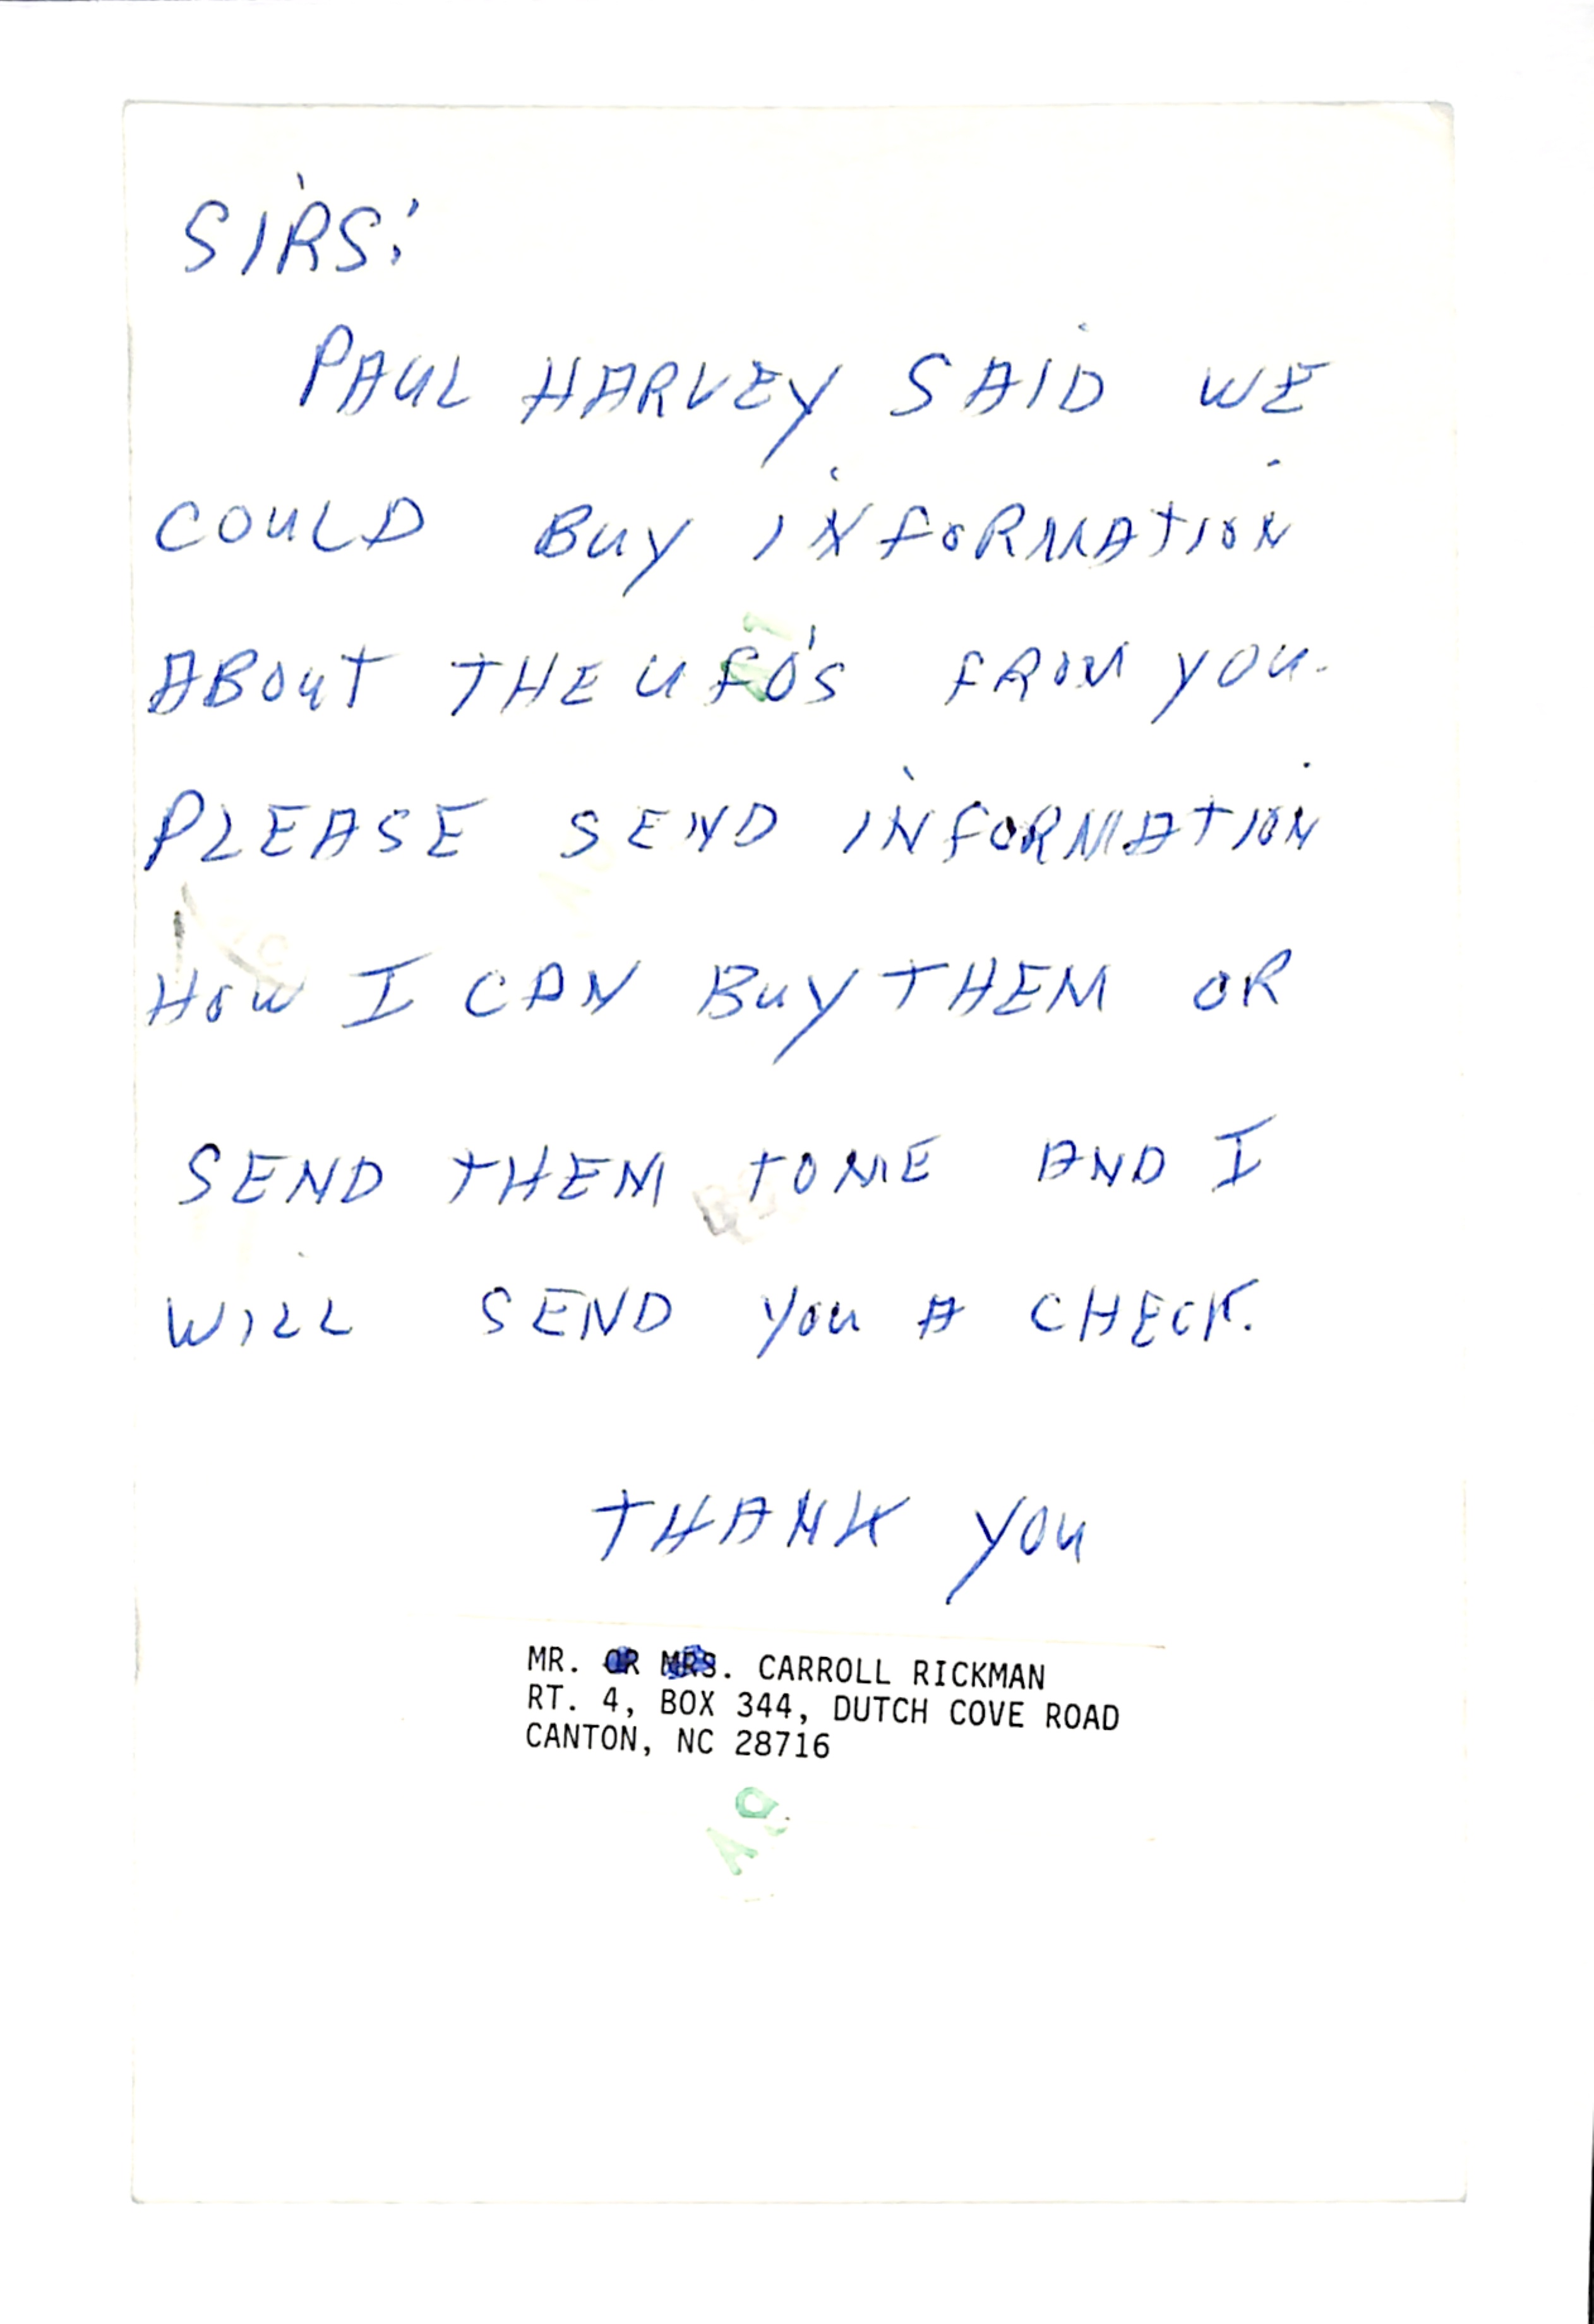 SIRS:
PAUL HARVEY SAID WE
COULD BUY INFORMATION
ABOUT THE UFO'S FROM YOU.
PLEASE SEND INFORMATION
HOW I CAN BUY THEM OR
SEND THEM TO ME AND I
WILL SEND YOU A CHECK.
THANK YOU
MR. OR MRS. CARROLL RICKMAN
RT. 4, BOX 344, DUTCH COVE ROAD
CANTON, NC 28716